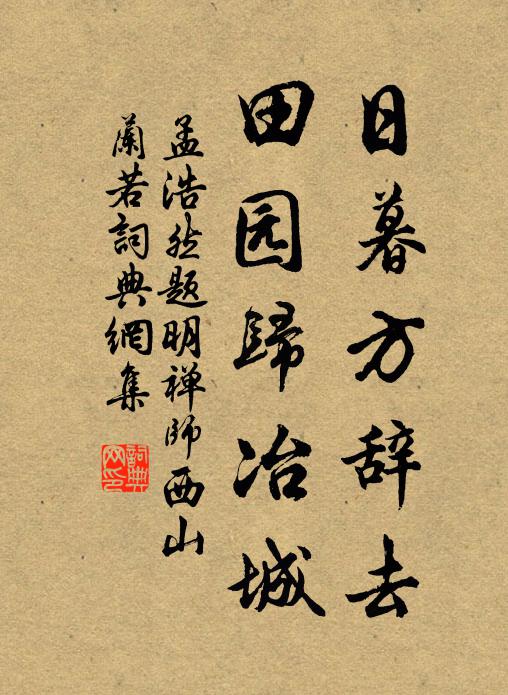 日暮方辞去
田园歸冶城
孟浩然题明禅师西山
蘭若詞典網集
詞典网印